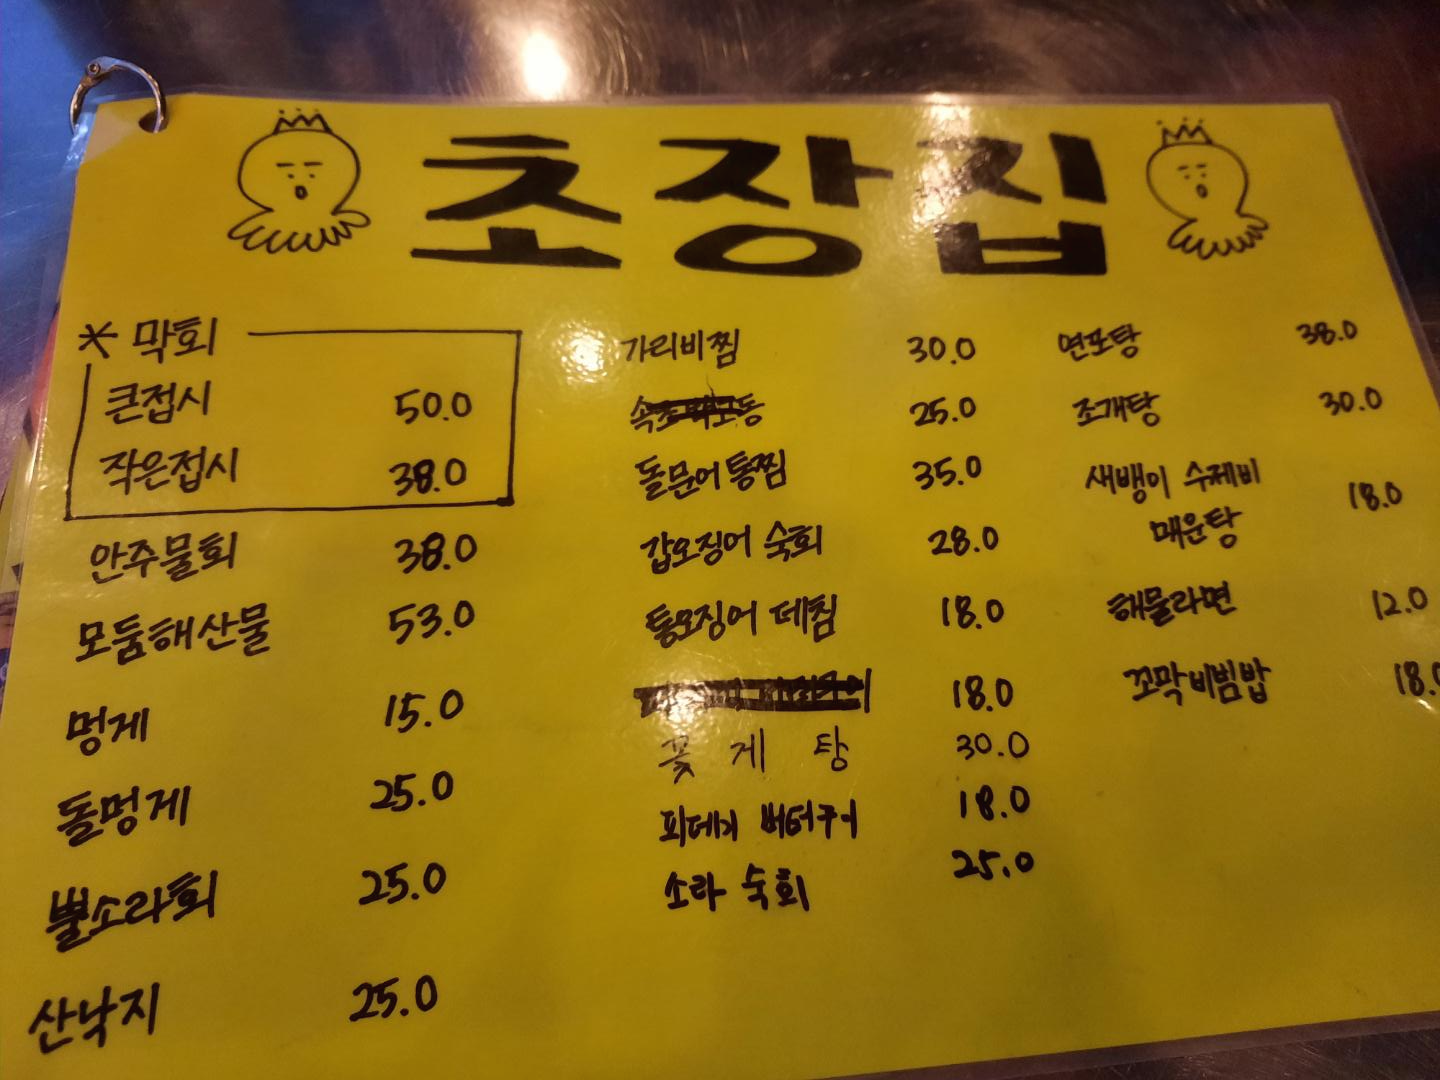 초장집
* 막회
큰접시 50.0
작은접시 38.0
안주물회 38.0
모둠해산물 53.0
멍게 15.0
돌멍게 25.0
뿔소라회 25.0
산낙지 25.0
가리비찜 30.0
25.0
돌문어통찜 35.0
갑오징어 숙회 28.0
통오징어 데침 18.0
18.0
꽃게탕 30.0
피데기 버터구이 18.0
소라 숙회 25.0
연포탕 38.0
조개탕 30.0
새뱅이 수제비
매운탕 18.0
해물라면 12.0
꼬막비빔밥 18.0